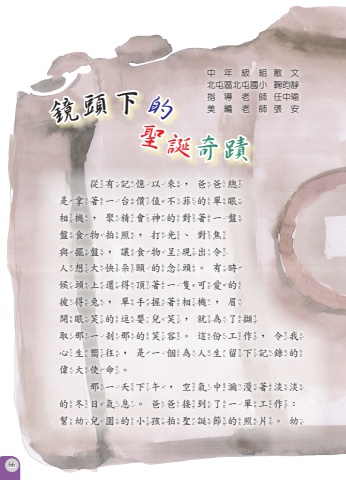 中年級組散文
北屯區北屯國小 鞠昀靜
指導老師任中瑜
美編老師張安
鏡頭下的
聖誕奇蹟
從有記憶以來，爸爸總
是拿著一台價值不菲的單眼
相機，聚精會神的對著一盤
盤食物拍照，打光、對焦
與擺盤，讓食物呈現出令
人想大快朵頤的念頭。有時
候頭上還得頂著一隻可愛的
彼得兔，單手握著相機，眉
開眼笑的逗嬰兒笑，就為了擷
取那一剎那的笑容。這份工作，令我
心生嚮往，是一個為人生留下記錄的
偉大使命。
那一天下午，空氣中瀰漫著淡淡
的冬日氣息。爸爸接到了一單工作：
幫幼兒園的小孩拍聖誕節的照片。幼
66